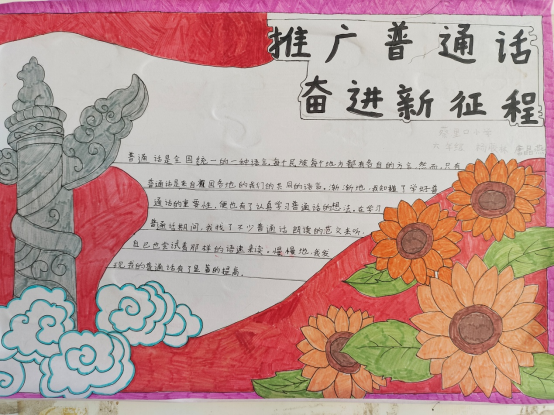 推广普通话
奋进新征程
普通话是全国统一的一种语言,每个民族每个地方都有各自的方言,然而,只有
普通话是来自祖国各地的我们的共同的语言。渐渐地,我知道了学好普
通话的重要性,便也有了认真学习普通话的想法。在学习
普通话期间,我找了不少普通话朗读的范文去听,
自己也尝试着那样的语速来读。慢慢地,我发
现,我的普通话有了显著的提高。